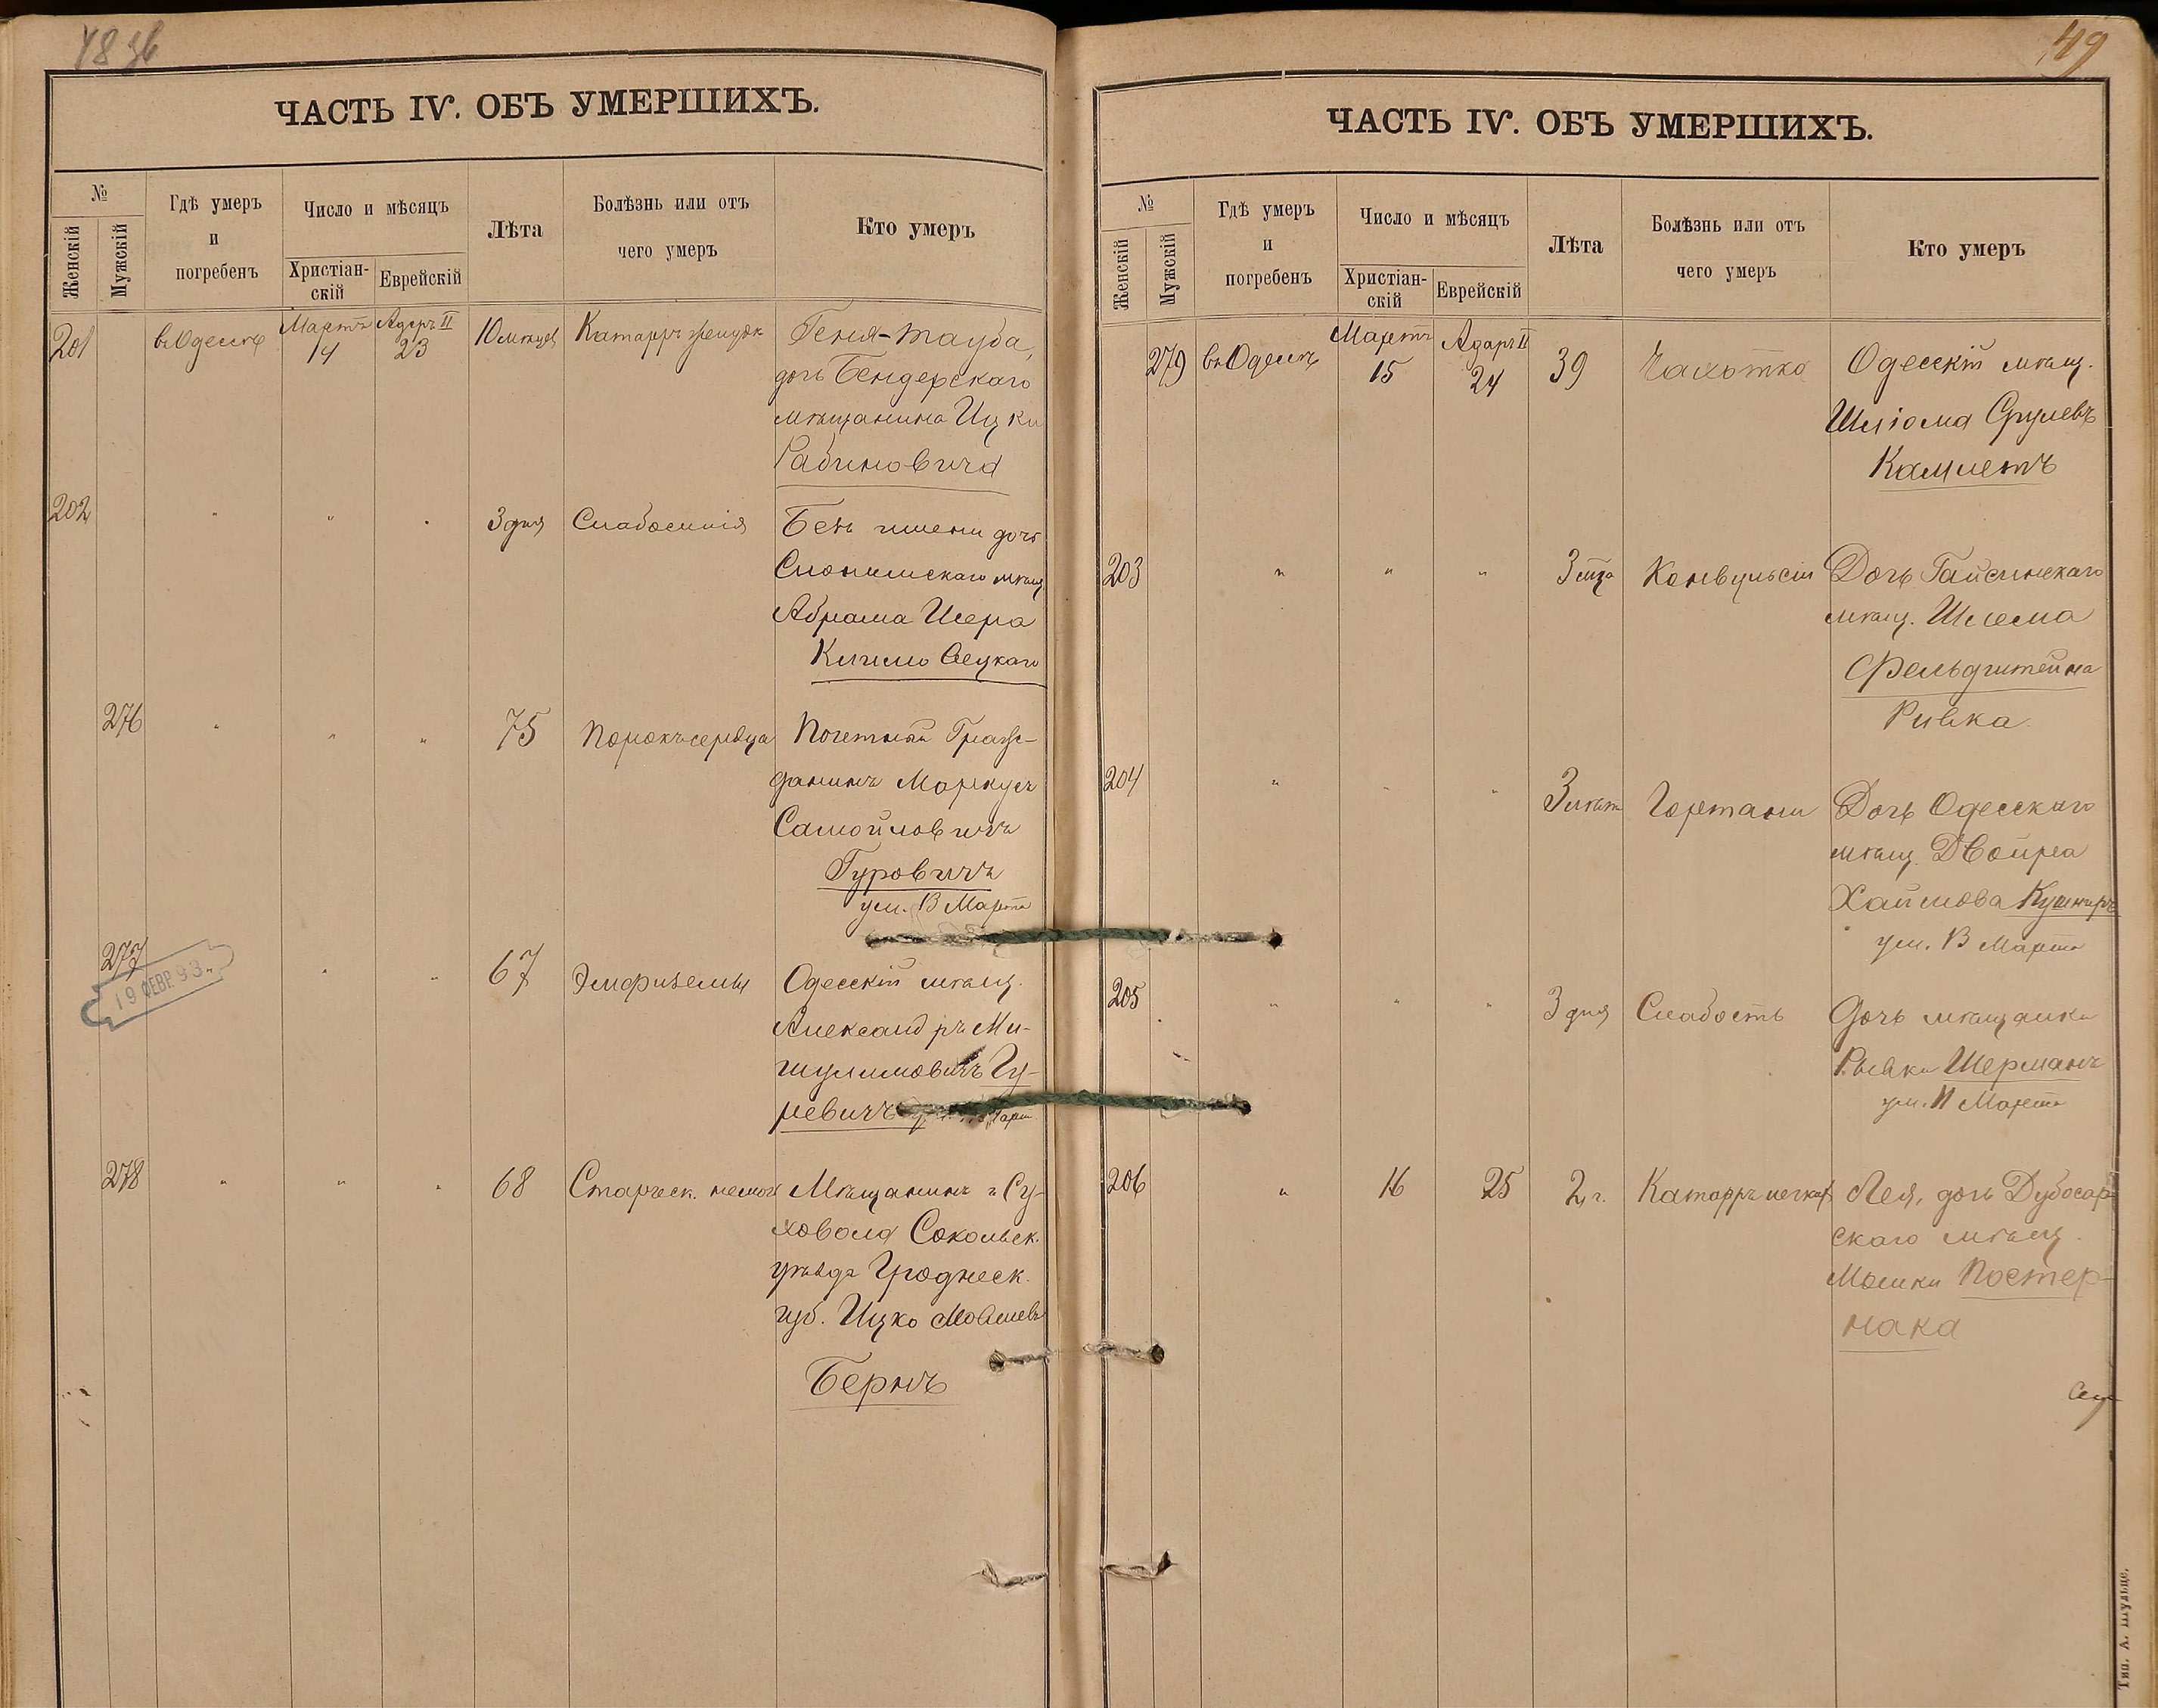 1836
ЧАСТЬ IV. ОБЪ УМЕРШИХЪ.
№
Женскій
Мужскій
Гдѣ умеръ
и
погребенъ
Число и мѣсяцъ
Христіан-
скій
Еврейскій
Лѣта
Болѣзнь или отъ
чего умеръ
Кто умеръ
201 въ Одессѣ Мартъ 14 Адаръ II 23 10 мѣсяц Катарръ желудк Геня-Тауба,
дочь Бендерскаго
мѣщанина Ицки
Рабиновича
202 " " " 3 дня Слабосилія Безъ имени дочь
Слонимскаго мѣщ
Абрама Шера
276 " " " 75 Порокъ сердца Почетный Граж-
данинъ Маркусъ
Самойловичъ
Гуровичъ
ум. 13 Марта
277 " " 67 Эмфиземы Одесскій мѣщ.
19 ФЕВР. 93.
Александръ Ми-
шулимовичъ Гу-
ревичъ
278 " " " 68 Старческ. немощ Мѣщанинъ г Су-
ховола Сокольск.
уѣзда Гроднеск.
губ. Ицко Мовшевъ
Бернъ
49
ЧАСТЬ IV. ОБЪ УМЕРШИХЪ.
№
Женскій
Мужскій
Гдѣ умеръ
и
погребенъ
Число и мѣсяцъ
Христіан-
скій
Еврейскій
Лѣта
Болѣзнь или отъ
чего умеръ
Кто умеръ
279 въ Одессѣ Мартъ 15 Адаръ II 24 39 Чахотка Одесскій мѣщ.
Шліома Срулевъ
Камметъ
203 " " " 3 Конвульсіи Дочь Гайсинскаго
мѣщ. Шлема
Фельдштейна
Ривка.
204 " " " 3 лѣт Гортани Дочь Одесскаго
мѣщ. Двойра
Хаймова Кушниръ
ум. 13 Марта
205 " " " 3 дня Слабость Дочь мѣщанки
Ривки Шерманъ
ум. 11 Марта
206 " 16 25 2 г. Катарръ легких Лея, дочь Дубосар-
скаго мѣщ.
Мошки Постер-
нака
Тип. А. Шульце.